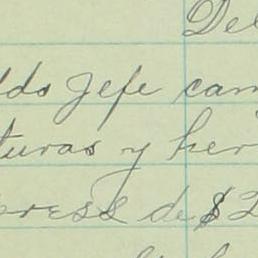 Del
ldo Jefe cam
turas y her
press de $2